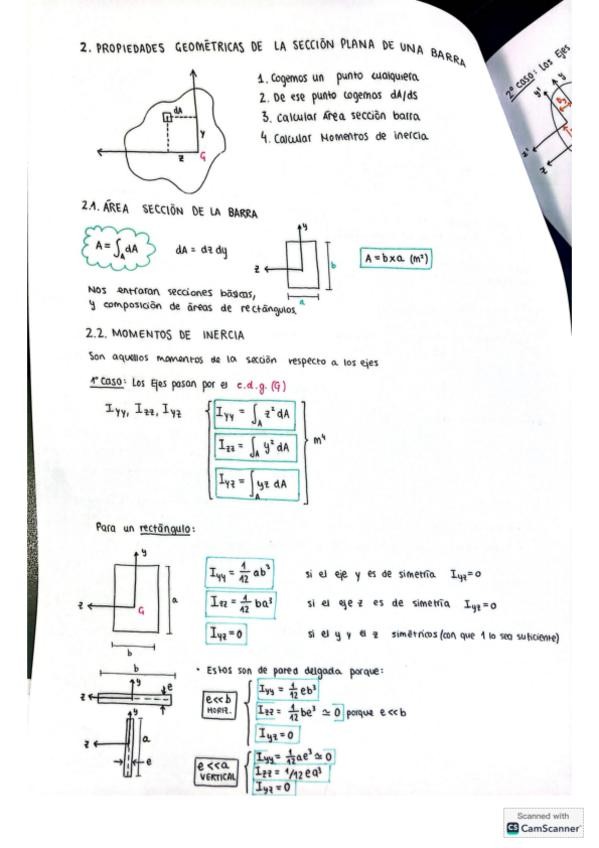 2. PROPIEDADES GEOMÉTRICAS DE LA SECCIÓN PLANA DE UNA BARRA
2º CASO: Los Ejes
y
y'
θ
z'
z
dA
y
z
G
1. Cogemos un punto cualquiera
2. De ese punto cogemos dA/ds
3. Calcular Área sección barra
4. Calcular Momentos de inercia
2.1. ÁREA SECCIÓN DE LA BARRA
A = ∫_A dA
dA = dz dy
y
z
b
a
A = b×a (m²)
Nos entraran secciones básicas,
y composición de áreas de rectángulos.
2.2. MOMENTOS DE INERCIA
Son aquellos momentos de la sección respecto a los ejes
1º CASO: Los Ejes pasan por el c.d.g. (G)
Iyy, Izz, Iyz
Iyy = ∫_A z² dA
Izz = ∫_A y² dA
Iyz = ∫_A yz dA
m⁴
Para un rectángulo:
y
z
G
a
b
Iyy = 1/12 ab³ si el eje y es de simetría Iyz=0
Izz = 1/12 ba³ si el eje z es de simetría Iyz=0
Iyz=0 si el y y el z simétricos (con que 1 lo sea suficiente)
• Estos son de pared delgada porque:
b
y
e
z
e<<b
HORIZ.
Iyy = 1/12 eb³
Izz = 1/12 be³ ≃ 0 porque e<<b
Iyz=0
y
z
a
e
e<<a
VERTICAL
Iyy = 1/12 ae³ ≃ 0
Izz = 1/12 ea³
Iyz=0
Scanned with
CS CamScanner